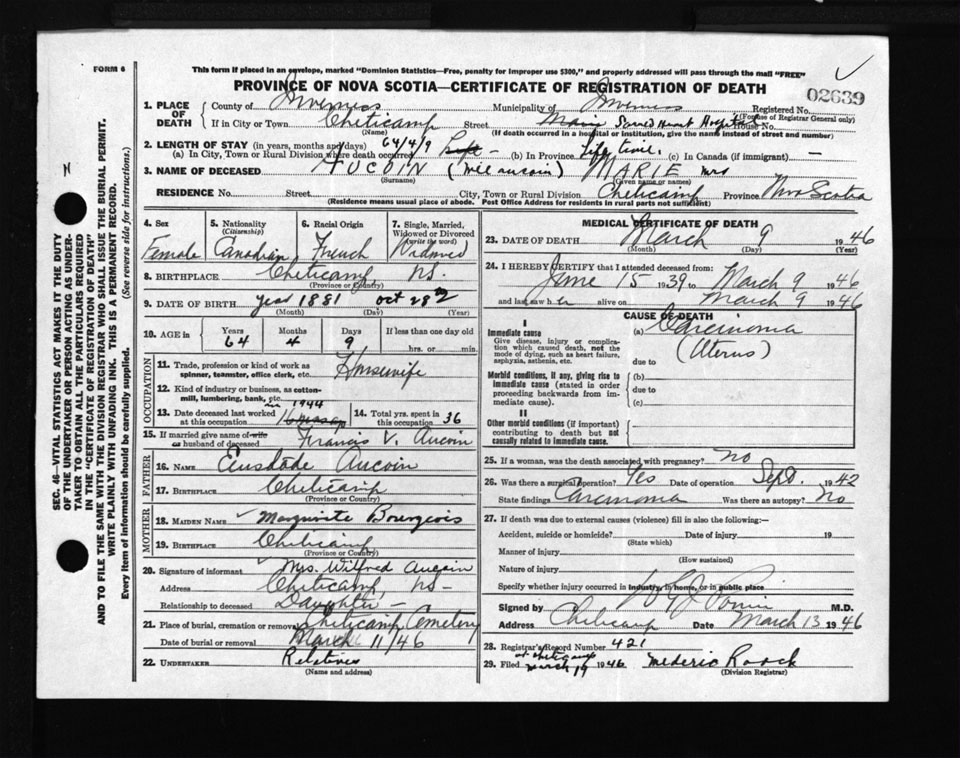 FORM 6
This form if placed in an envelope, marked "Dominion Statistics—Free, penalty for improper use $300," and properly addressed will pass through the mail "FREE"
PROVINCE OF NOVA SCOTIA—CERTIFICATE OF REGISTRATION OF DEATH
02639
1. PLACE OF DEATH
County of Inverness Municipality of Inverness Registered No.
(For use of Registrar General only)
If in City or Town Cheticamp Street Main Sacred Heart Hospital House No.
(Name) (If death occurred in a hospital or institution, give the name instead of street and number)
2. LENGTH OF STAY (in years, months and days) 64/4/9
(a) In City, Town or Rural Division where death occurred (b) In Province Life time. (c) In Canada (if immigrant) —
3. NAME OF DECEASED AUCOIN (née aucoin) MARIE Mrs
(Surname) (Given name or names)
RESIDENCE No. Street City, Town or Rural Division Cheticamp Province Nova Scotia
(Residence means usual place of abode. Post Office Address for residents in rural parts not sufficient)
4. Sex Female
5. Nationality (Citizenship) Canadian
6. Racial Origin French
7. Single, Married, Widowed or Divorced (write the word) Widowed
8. BIRTHPLACE Cheticamp NS.
(Province or Country)
9. DATE OF BIRTH year 1881 Oct 28th
(Month) (Day) (Year)
10. AGE in Years 64 Months 4 Days 9 If less than one day old
hrs. or min.
OCCUPATION
11. Trade, profession or kind of work as spinner, teamster, office clerk, etc. Housewife
12. Kind of industry or business, as cotton-mill, lumbering, bank, etc.
13. Date deceased last worked at this occupation 1944
14. Total yrs. spent in this occupation 36
15. If married give name of wife or husband of deceased Francis V. Aucoin
FATHER
16. NAME Eustade Aucoin
17. BIRTHPLACE Cheticamp
(Province or Country)
MOTHER
18. MAIDEN NAME Marguerite Bourgeois
19. BIRTHPLACE Cheticamp
(Province or Country)
20. Signature of informant Mrs. Wilfred Aucoin
Address Cheticamp, NS—
Relationship to deceased Daughter—
21. Place of burial, cremation or removal Cheticamp Cemetery
Date of burial or removal March 11/46
22. UNDERTAKER Relatives
(Name and address)
MEDICAL CERTIFICATE OF DEATH
23. DATE OF DEATH March 9 1946
(Month) (Day) (Year)
24. I HEREBY CERTIFY that I attended deceased from:
June 15 1939 to March 9 1946
and last saw her alive on March 9 1946
CAUSE OF DEATH
I
Immediate cause
Give disease, injury or complication which caused death, not the mode of dying, such as heart failure, asphyxia, asthenia, etc.
(a) Carcinoma
(Uterus)
due to
Morbid conditions, if any, giving rise to immediate cause (stated in order proceeding backwards from immediate cause).
(b)
due to
(c)
II
Other morbid conditions (if important) contributing to death but not causally related to immediate cause.
25. If a woman, was the death associated with pregnancy? no
26. Was there a surgical operation? Yes Date of operation Sept. 1942
State findings Carcinoma Was there an autopsy? No
27. If death was due to external causes (violence) fill in also the following:—
Accident, suicide or homicide? Date of injury 19
(State which)
Manner of injury
(How sustained)
Nature of injury
Specify whether injury occurred in industry, in home, or in public place
Signed by M.D.
Address Cheticamp Date March 13 1946
28. Registrar's Record Number 421
29. Filed at Cheticamp March 19 1946 Mederic Roach
(Division Registrar)
SEC. 46—VITAL STATISTICS ACT MAKES IT THE DUTY
OF THE UNDERTAKER OR PERSON ACTING AS UNDER-
TAKER TO OBTAIN ALL THE PARTICULARS REQUIRED
IN THE "CERTIFICATE OF REGISTRATION OF DEATH"
AND TO FILE THE SAME WITH THE DIVISION REGISTRAR WHO SHALL ISSUE THE BURIAL PERMIT.
WRITE PLAINLY WITH UNFADING INK. THIS IS A PERMANENT RECORD.
Every item of information should be carefully supplied. (See reverse side for instructions.)